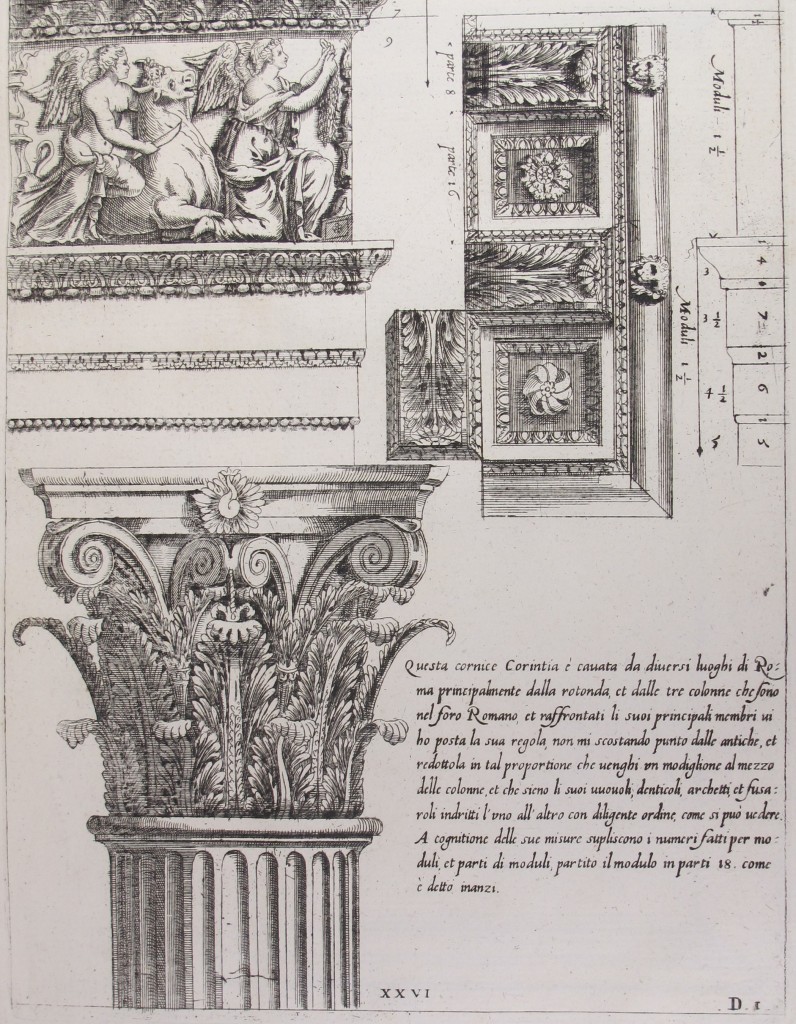 7
9
parte 8
parte 16
Moduli 1 1/2
Moduli 1 1/2
3
3 1/2
4 1/2
4
7
2
6
5
Questa cornice Corintia è cauata da diuersi luoghi di Ro:
ma principalmente dalla rotonda, et dalle tre colonne che sono
nel foro Romano, et raffrontati li suoi principali membri ui
ho posta la sua regola, non mi scostando punto dalle antiche, et
redottola in tal proportione che uenghi vn modiglione al mezzo
delle colonne, et che sieno li suoi uuouoli, denticoli, archetti, et fusa:
roli indritti l'vno all'altro con diligente ordine, come si può uedere.
A cognitione delle sue misure supliscono i numeri fatti per mo:
duli, et parti di moduli, partito il modulo in parti 18. come
è detto inanzi.
XXVI
D. 1